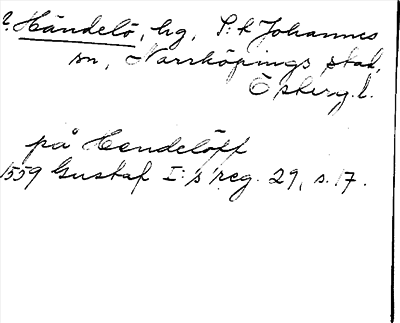 ?. Händelö, hg, S:t Johannes
sn, Norrköpings stad,
Österg. l.
på Hendelöff
1559 Gustaf I:s reg. 29, s. 17.